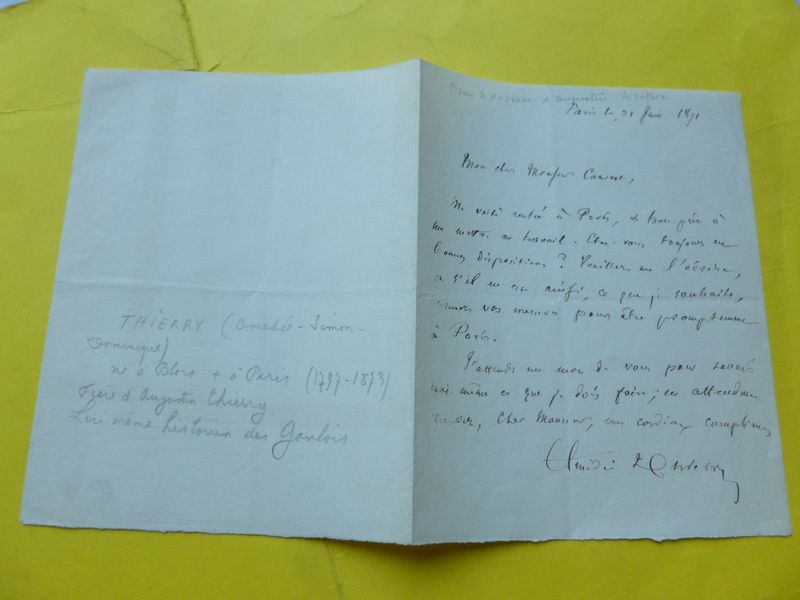 THIERRY (Amédée-Simon-
Dominique)
né à Blois + à Paris (1797-1873)
Frère d'Augustin Thierry
Lui même historien des Gaulois
d'augustin
Paris le 21 Juin 1871
Mon cher Monsieur
Me voilà rentré à Paris, & tout prêt à
me mettre au travail. Etes-vous toujours en
bonnes dispositions? Veuillez me l'écrire,
& s'il en est ainsi, ce que je souhaite,
prenez vos mesures pour être promptement
à Paris.
J'attends un mot de vous pour savoir
moi-même ce que je dois faire; en attendant
recevez, cher Monsieur, mes cordiaux complimens
Amédée Thierry